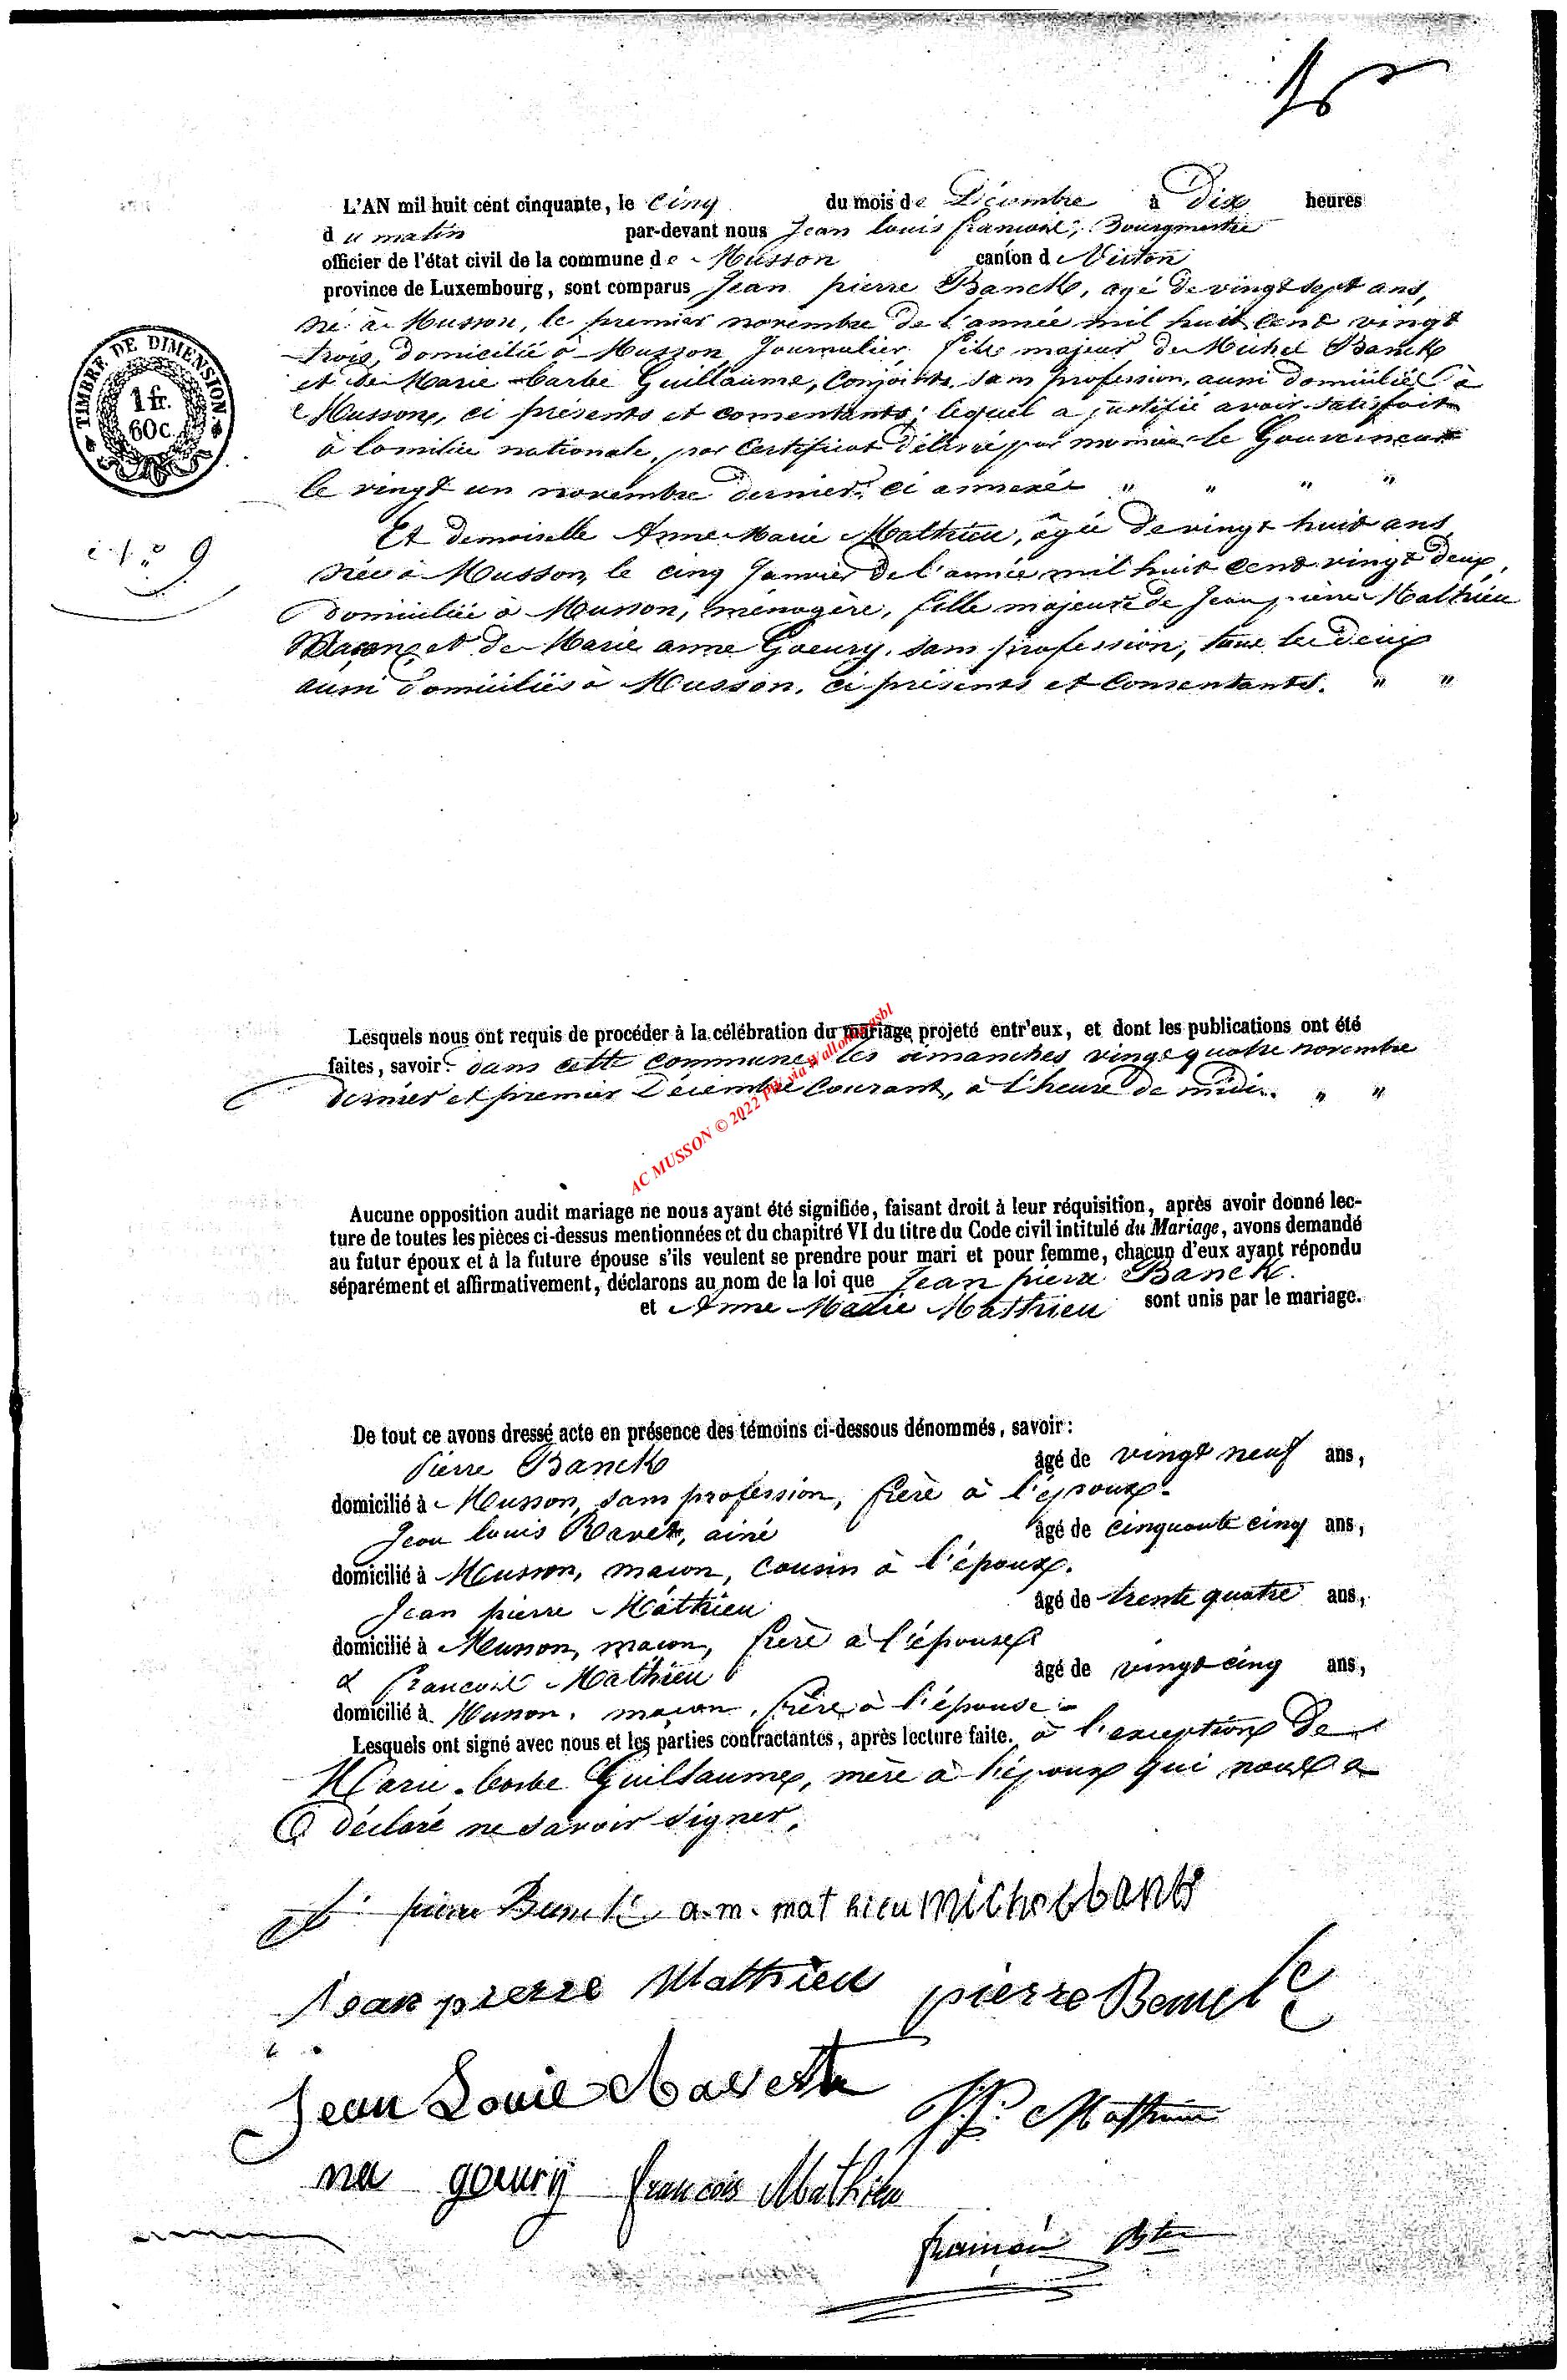 L'AN mil huit cent cinquante, le cinq du mois de Décembre à Dix heures
du matin par-devant nous Jean louis françois, Bourgmestre
officier de l'état civil de la commune de Musson canton d Virton
province de Luxembourg, sont comparus Jean pierre Banck, agé de vingt sept ans,
né à Musson, le premier novembre de l'année mil huit cent vingt
trois, domicilié à Musson, Journalier, fils majeur de Michel Banck
et de Marie barbe Guillaume, conjoints, sans profession, aussi domiciliés à
Musson, ci présents et consentants; lequel a justifié avoir satisfait
à la milice nationale, par certificat délivré par le Gouverneur
le vingt un novembre dernier, ci annexé " " " "
TIMBRE DE DIMENSION
1 fr.
60 c.
Et demoiselle Anne Marie Mathieu, âgée de vingt huit ans,
née à Musson, le cinq Janvier de l'année mil huit cent vingt deux,
N° 9
domiciliée à Musson, ménagère, fille majeure de Jean pierre Mathieu
Maçon, et de Marie anne Goeury, sans profession, tous les deux
aussi domiciliés à Musson, ci présents et consentants. " "
Lesquels nous ont requis de procéder à la célébration du mariage projeté entr'eux, et dont les publications ont été
faites, savoir: dans cette commune, les dimanches vingt quatre novembre
dernier et premier Décembre courant, à l'heure de midi. " "
AC MUSSON © 2022 PW via Wallonia asbl
Aucune opposition audit mariage ne nous ayant été signifiée, faisant droit à leur réquisition, après avoir donné lec-
ture de toutes les pièces ci-dessus mentionnées et du chapitre VI du titre du Code civil intitulé du Mariage, avons demandé
au futur époux et à la future épouse s'ils veulent se prendre pour mari et pour femme, chacun d'eux ayant répondu
séparément et affirmativement, déclarons au nom de la loi que Jean pierre Banck.
et Anne Marie Mathieu sont unis par le mariage.
De tout ce avons dressé acte en présence des témoins ci-dessous dénommés, savoir:
Pierre Banck âgé de vingt neuf ans,
domicilié à Musson, sans profession, frère à l'époux.
Jean louis Ravet, ainé âgé de cinquante cinq ans,
domicilié à Musson, maçon, cousin à l'époux.
Jean pierre Mathieu âgé de trente quatre ans,
domicilié à Musson, maçon, frère à l'épouse
& françois Mathieu âgé de vingt cinq ans,
domicilié à Musson, maçon, frère à l'épouse.
Lesquels ont signé avec nous et les parties contractantes, après lecture faite. à l'exception de
Marie barbe Guillaume, mère à l'époux qui nous a
déclaré ne savoir signer.
pierre Banck a.m. mathieu michel bank
jean pierre Mathieu pierre Banck
Jean Louie Ravet J.P. Mathieu
ma goeury francois Mathieu
françois Bter